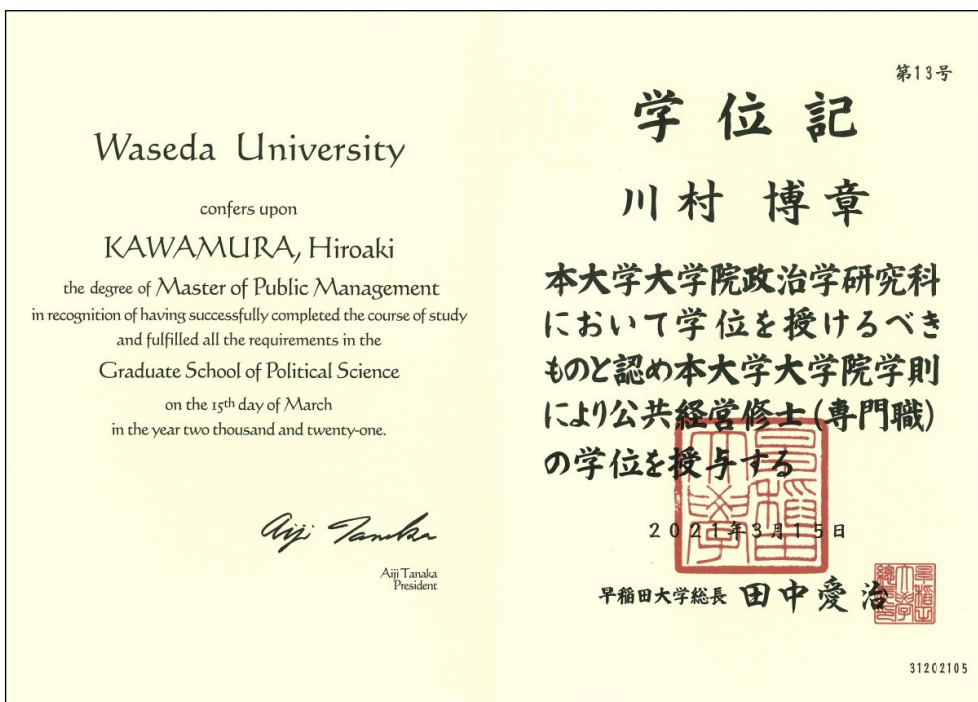 Waseda University
confers upon
KAWAMURA, Hiroaki
the degree of Master of Public Management
in recognition of having successfully completed the course of study
and fulfilled all the requirements in the
Graduate School of Political Science
on the 15th day of March
in the year two thousand and twenty-one.
Aiji Tanaka
Aiji Tanaka
President
第13号
学位記
川村 博章
本大学大学院政治学研究科
において学位を授けるべき
ものと認め本大学大学院学則
により公共経営修士(専門職)
の学位を授与する
早稲田大学
2021年3月15日
早稲田大学総長 田中愛治
31202105